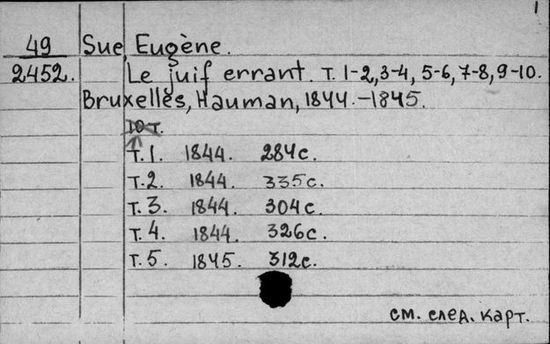 1
49 Sue, Eugène.
2452. Le juif errant. Т. 1-2, 3-4, 5-6, 7-8, 9-10.
Bruxelles, Hauman, 1844.-1845.
10 т.
Т. 1. 1844. 284с.
Т. 2. 1844. 335с.
Т. 3. 1844. 304с.
Т. 4. 1844. 326с.
Т. 5. 1845. 312с.
см. след. карт.